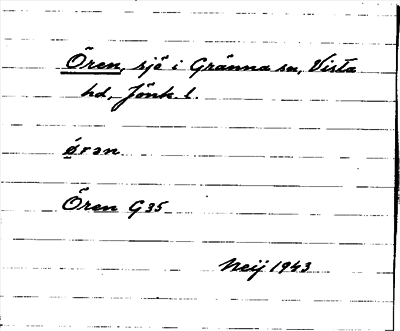 Ören, sjö i Gränna sn, Vista
hd, Jönk. l.
ǿ̨rən
Ören G35
Neij 1943